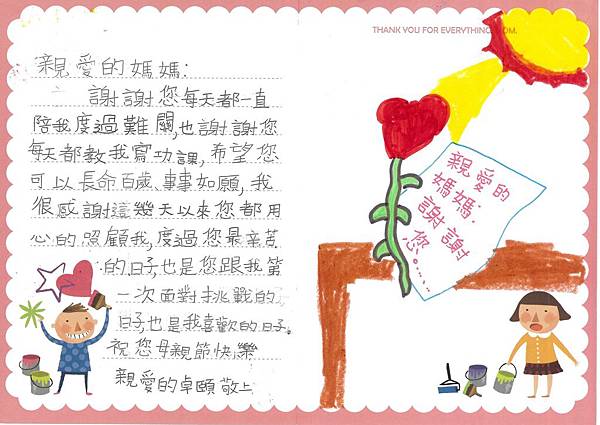 親愛的媽媽:
謝謝您每天都一直
陪我度過難關,也謝謝您
每天都教我寫功課,希望您
可以長命百歲、事事如願,我
很感謝這幾天以來您都用
心的照顧我,度過您最辛苦
的日子也是您跟我第
一次面對挑戰的
日子也是我喜歡的日子。
祝您母親節快樂
親愛的卓頤敬上
THANK YOU FOR EVERYTHING, MOM.
親愛的
媽媽:
謝謝
您。……